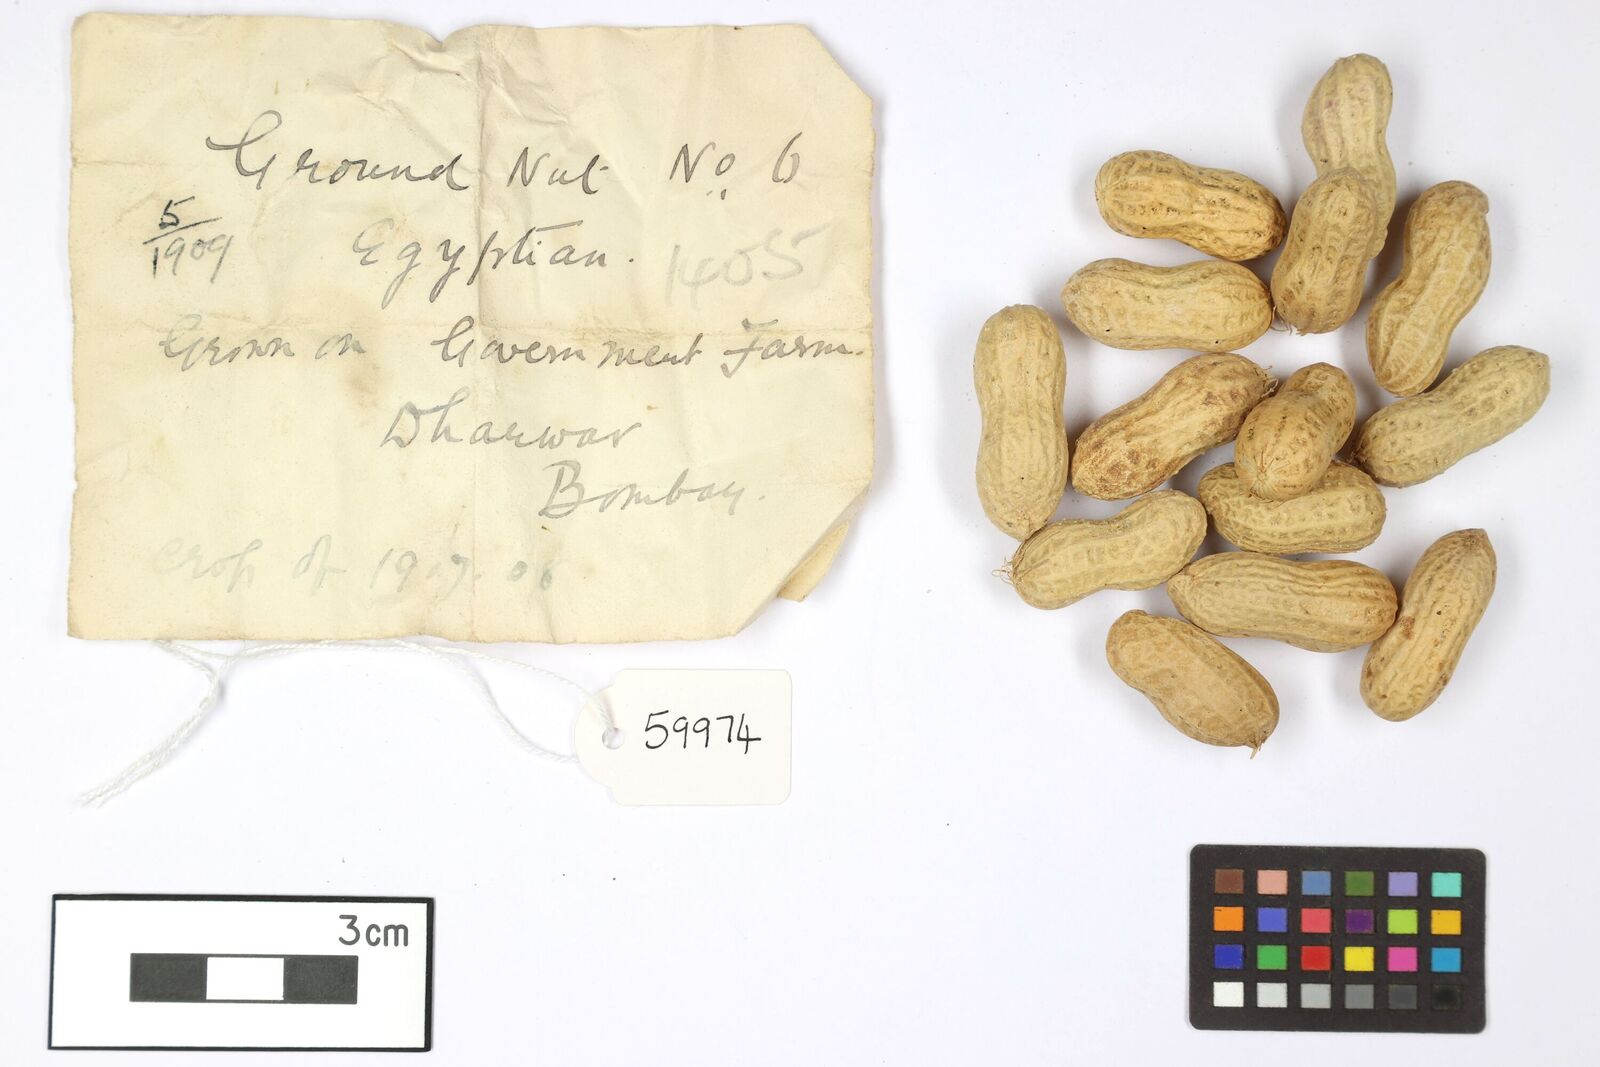 Ground Nut No. 6
5/1909
Egyptian. 1405
Grown on Government Farm.
Dharwar
Bombay.
Crop of 1907.08
59974
3cm